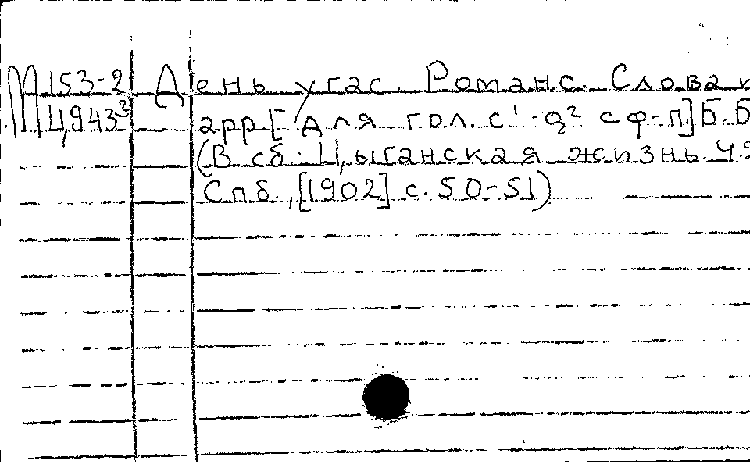 М 153-2 День угас. Романс. Слова и
Ц943² арр. [для гол. c¹-g² с ф-п] Б. Б
(В сб. Цыганская жизнь. Ч2
Спб., [1902] с. 50-51)